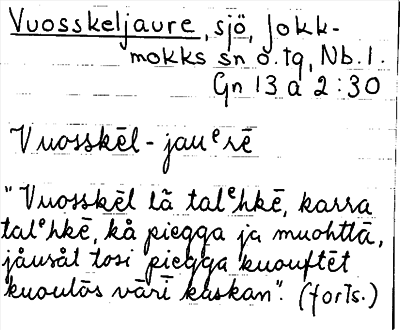 Vuosskeljaure, sjö, Jokk-
mokks sn o. tg, Nb. l.
Gn 13 a 2:30
Vuosskēl-jauᵉrē
"Vuosskēl lä talᵉhkē, karra
talᵉhkē, kå piegga ja muohttā,
jåusåt tosi piegga kuouftēt
kuoulōs vārī kaskan". (forts.)